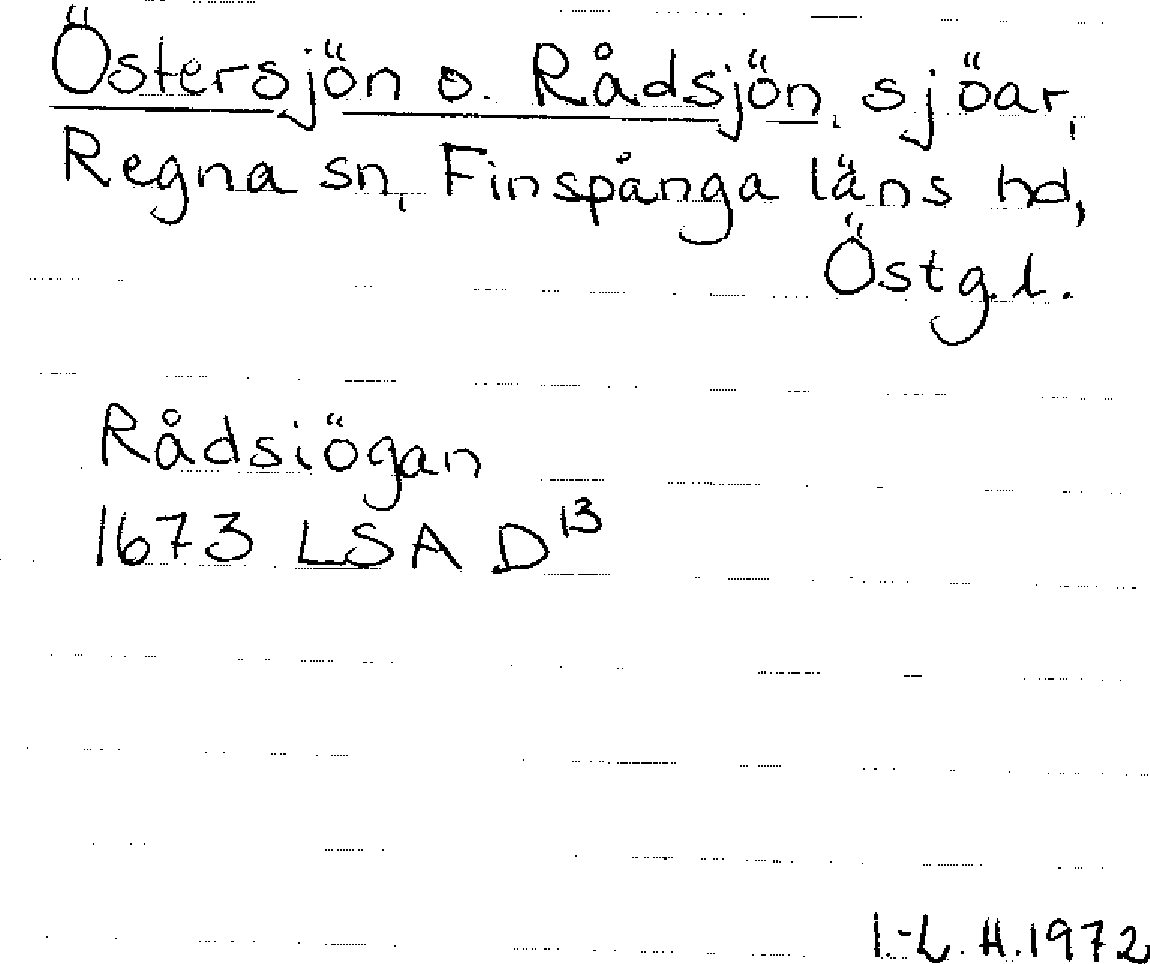 Östersjön o. Rådsjön, sjöar,
Regna sn, Finspånga läns hd,
Östg.l.
Rådsiögan
1673 LSA D¹³
I.-L. H. 1972